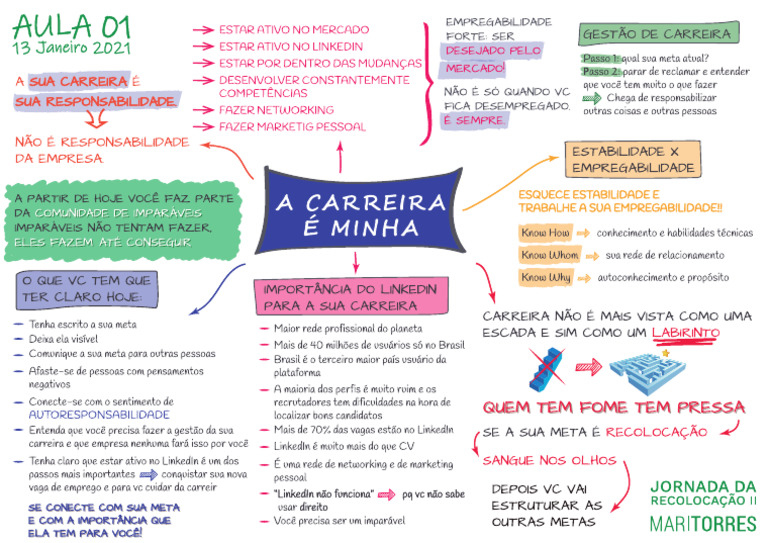 AULA 01
13 Janeiro 2021
A SUA CARREIRA É
SUA RESPONSABILIDADE
NÃO É RESPONSABILIDADE
DA EMPRESA.
ESTAR ATIVO NO MERCADO
ESTAR ATIVO NO LINKEDIN
ESTAR POR DENTRO DAS MUDANÇAS
DESENVOLVER CONSTANTEMENTE
COMPETÊNCIAS
FAZER NETWORKING
FAZER MARKETIG PESSOAL
EMPREGABILIDADE
FORTE: SER
DESEJADO PELO
MERCADO!
NÃO É SÓ QUANDO VC
FICA DESEMPREGADO.
É SEMPRE.
GESTÃO DE CARREIRA
Passo 1: qual sua meta atual?
Passo 2: parar de reclamar e entender
que você tem muito o que fazer
Chega de responsabilizar
outras coisas e outras pessoas
A PARTIR DE HOJE VOCÊ FAZ PARTE
DA COMUNIDADE DE IMPARÁVEIS
IMPARÁVEIS NÃO TENTAM FAZER,
ELES FAZEM ATÉ CONSEGUIR
A CARREIRA
É MINHA
ESTABILIDADE X
EMPREGABILIDADE
ESQUECE ESTABILIDADE E
TRABALHE A SUA EMPREGABILIDADE!!
Know How conhecimento e habilidades técnicas
Know Whom sua rede de relacionamento
Know Why autoconhecimento e propósito
O QUE VC TEM QUE
TER CLARO HOJE:
Tenha escrito a sua meta
Deixa ela visível
Comunique a sua meta para outras pessoas
Afaste-se de pessoas com pensamentos
negativos
Conecte-se com o sentimento de
AUTORESPONSABILIDADE
Entenda que você precisa fazer a gestão da sua
carreira e que empresa nenhuma fará isso por você
Tenha claro que estar ativo no LinkedIn é um dos
passos mais importantes conquistar sua nova
vaga de emprego e para vc cuidar da carreir
SE CONECTE COM SUA META
E COM A IMPORTÂNCIA QUE
ELA TEM PARA VOCÊ!
IMPORTÂNCIA DO LINKEDIN
PARA A SUA CARREIRA
Maior rede profissional do planeta
Mais de 40 milhões de usuários só no Brasil
Brasil é o terceiro maior país usuário da
plataforma
A maioria dos perfis é muito ruim e os
recrutadores tem dificuldades na hora de
localizar bons candidatos
Mais de 70% das vagas estão no LinkedIn
LinkedIn é muito mais do que CV
É uma rede de networking e de marketing
pessoal
"LinkedIn não funciona" pq vc não sabe
usar direito
Você precisa ser um imparável
CARREIRA NÃO É MAIS VISTA COMO UMA
ESCADA E SIM COMO UM LABIRINTO
QUEM TEM FOME TEM PRESSA
SE A SUA META É RECOLOCAÇÃO
SANGUE NOS OLHOS
DEPOIS VC VAI
ESTRUTURAR AS
OUTRAS METAS
JORNADA DA
RECOLOCAÇÃO II
MARITORRES